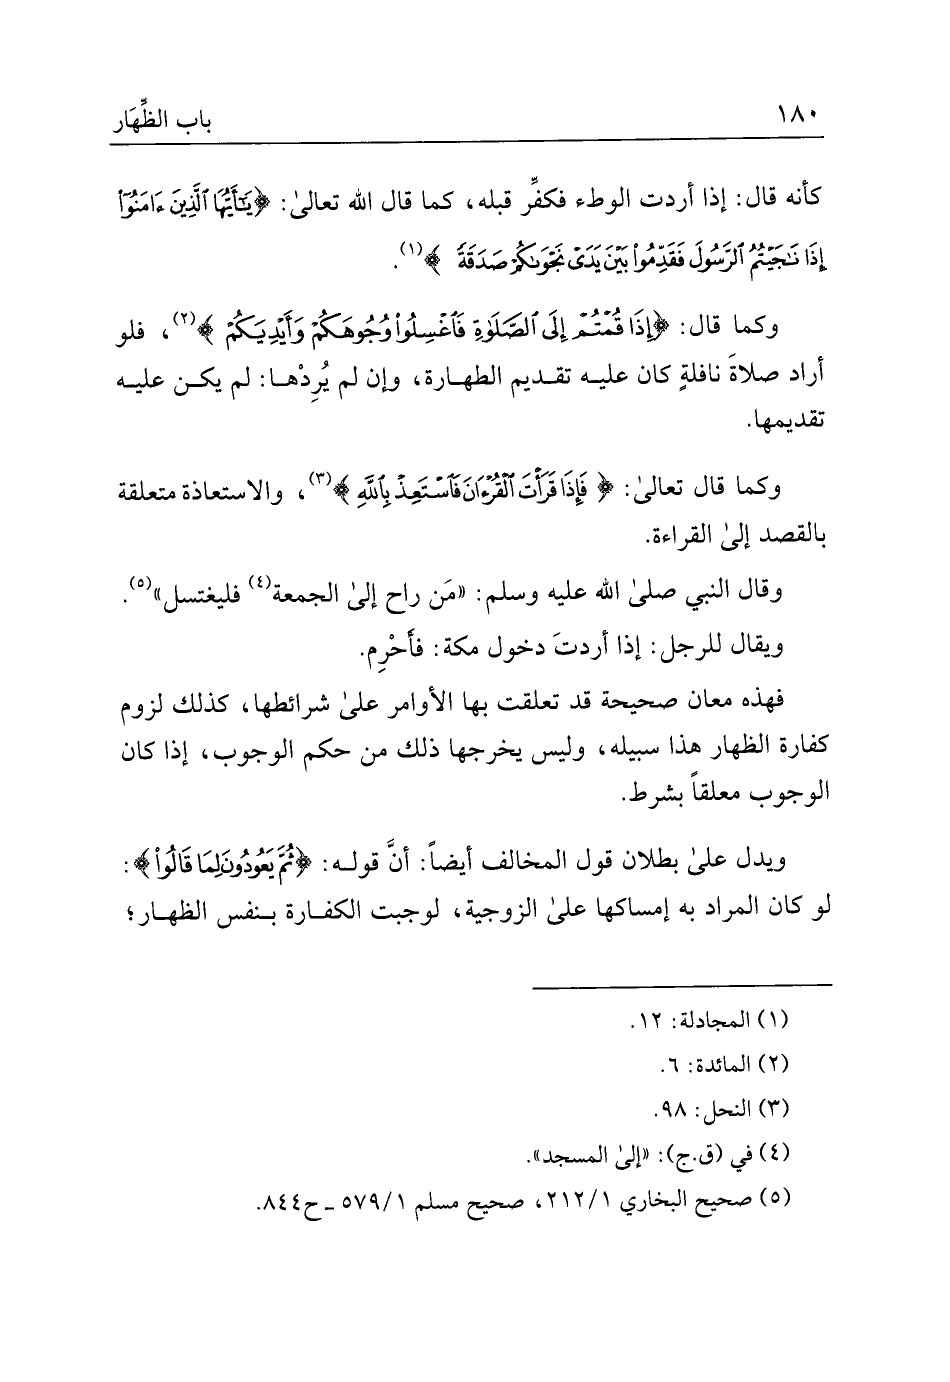 ١٨٠
باب الظِّهَار
كأنه قال: إذا أردت الوطء فكفِّر قبله، كما قال الله تعالىٰ: ﴿يَـٰٓأَيُّهَا ٱلَّذِينَ ءَامَنُوٓا۟
إِذَا نَـٰجَيْتُمُ ٱلرَّسُولَ فَقَدِّمُوا۟ بَيْنَ يَدَىْ نَجْوَىٰكُمْ صَدَقَةً ﴾(١).
وكما قال: ﴿إِذَا قُمْتُمْ إِلَى ٱلصَّلَوٰةِ فَٱغْسِلُوا۟ وُجُوهَكُمْ وَأَيْدِيَكُمْ ﴾(٢)، فلو
أراد صلاةَ نافلةٍ كان عليه تقديم الطهارة، وإن لم يُرِدْها: لم يكن عليه
تقديمها.
وكما قال تعالىٰ: ﴿ فَإِذَا قَرَأْتَ ٱلْقُرْءَانَ فَٱسْتَعِذْ بِٱللَّهِ ﴾(٣)، والاستعاذة متعلقة
بالقصد إلىٰ القراءة.
وقال النبي صلىٰ الله عليه وسلم: «مَن راح إلىٰ الجمعة(٤) فليغتسل»(٥).
ويقال للرجل: إذا أردتَ دخول مكة: فأَحْرِم.
فهذه معان صحيحة قد تعلقت بها الأوامر علىٰ شرائطها، كذلك لزوم
كفارة الظهار هذا سبيله، وليس يخرجها ذلك من حكم الوجوب، إذا كان
الوجوب معلقاً بشرط.
ويدل علىٰ بطلان قول المخالف أيضاً: أنَّ قوله: ﴿ثُمَّ يَعُودُونَ لِمَا قَالُوا۟﴾:
لو كان المراد به إمساكها علىٰ الزوجية، لوجبت الكفارة بنفس الظهار؛
(١) المجادلة: ١٢.
(٢) المائدة: ٦.
(٣) النحل: ٩٨.
(٤) في (ق.ج): «إلىٰ المسجد».
(٥) صحيح البخاري ٢١٢/١، صحيح مسلم ٥٧٩/١ ـ ح٨٤٤.